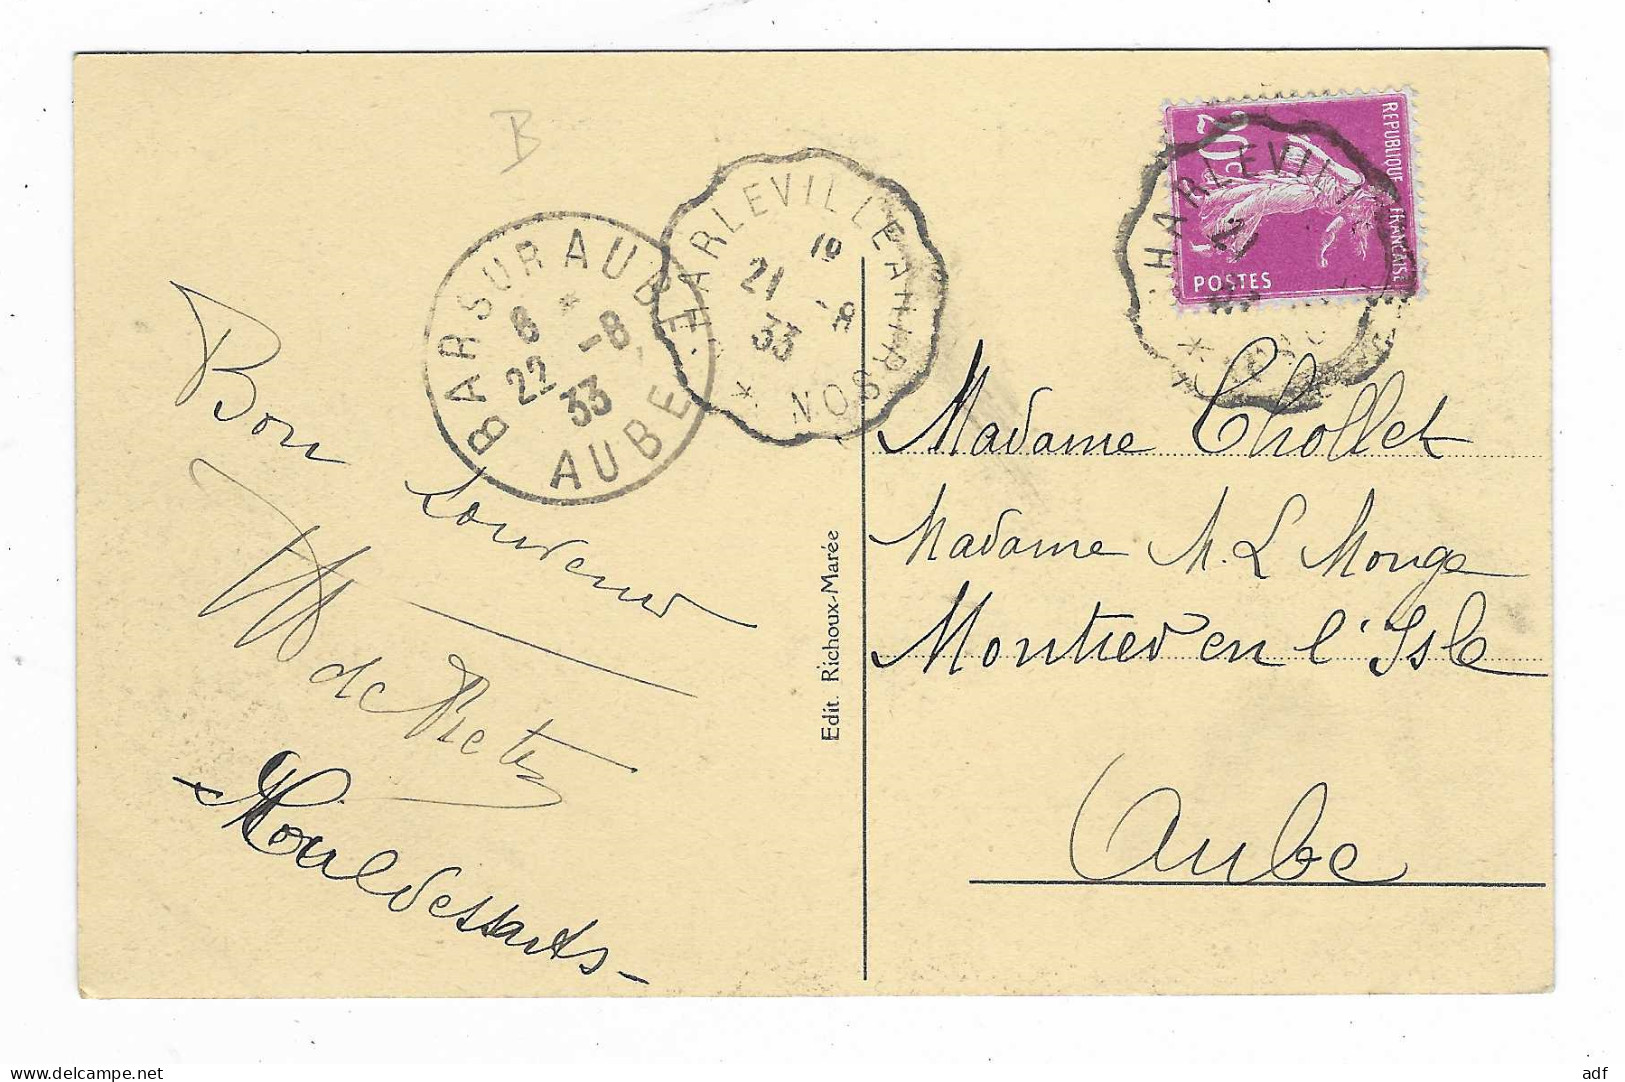 B
20c
REPUBLIQUE FRANÇAISE
POSTES
CHARLEVILLE
CHARLEVILLE A HIRSON
19
21 -8
33
*
BAR SUR AUBE
8 *
22 -8
33
AUBE
Bon
Souvenir
de
Mouldessarts
Edit. Richoux-Marée
Madame Chollet
Madame M. L Monge
Montier en l'Isle
Aube
adf